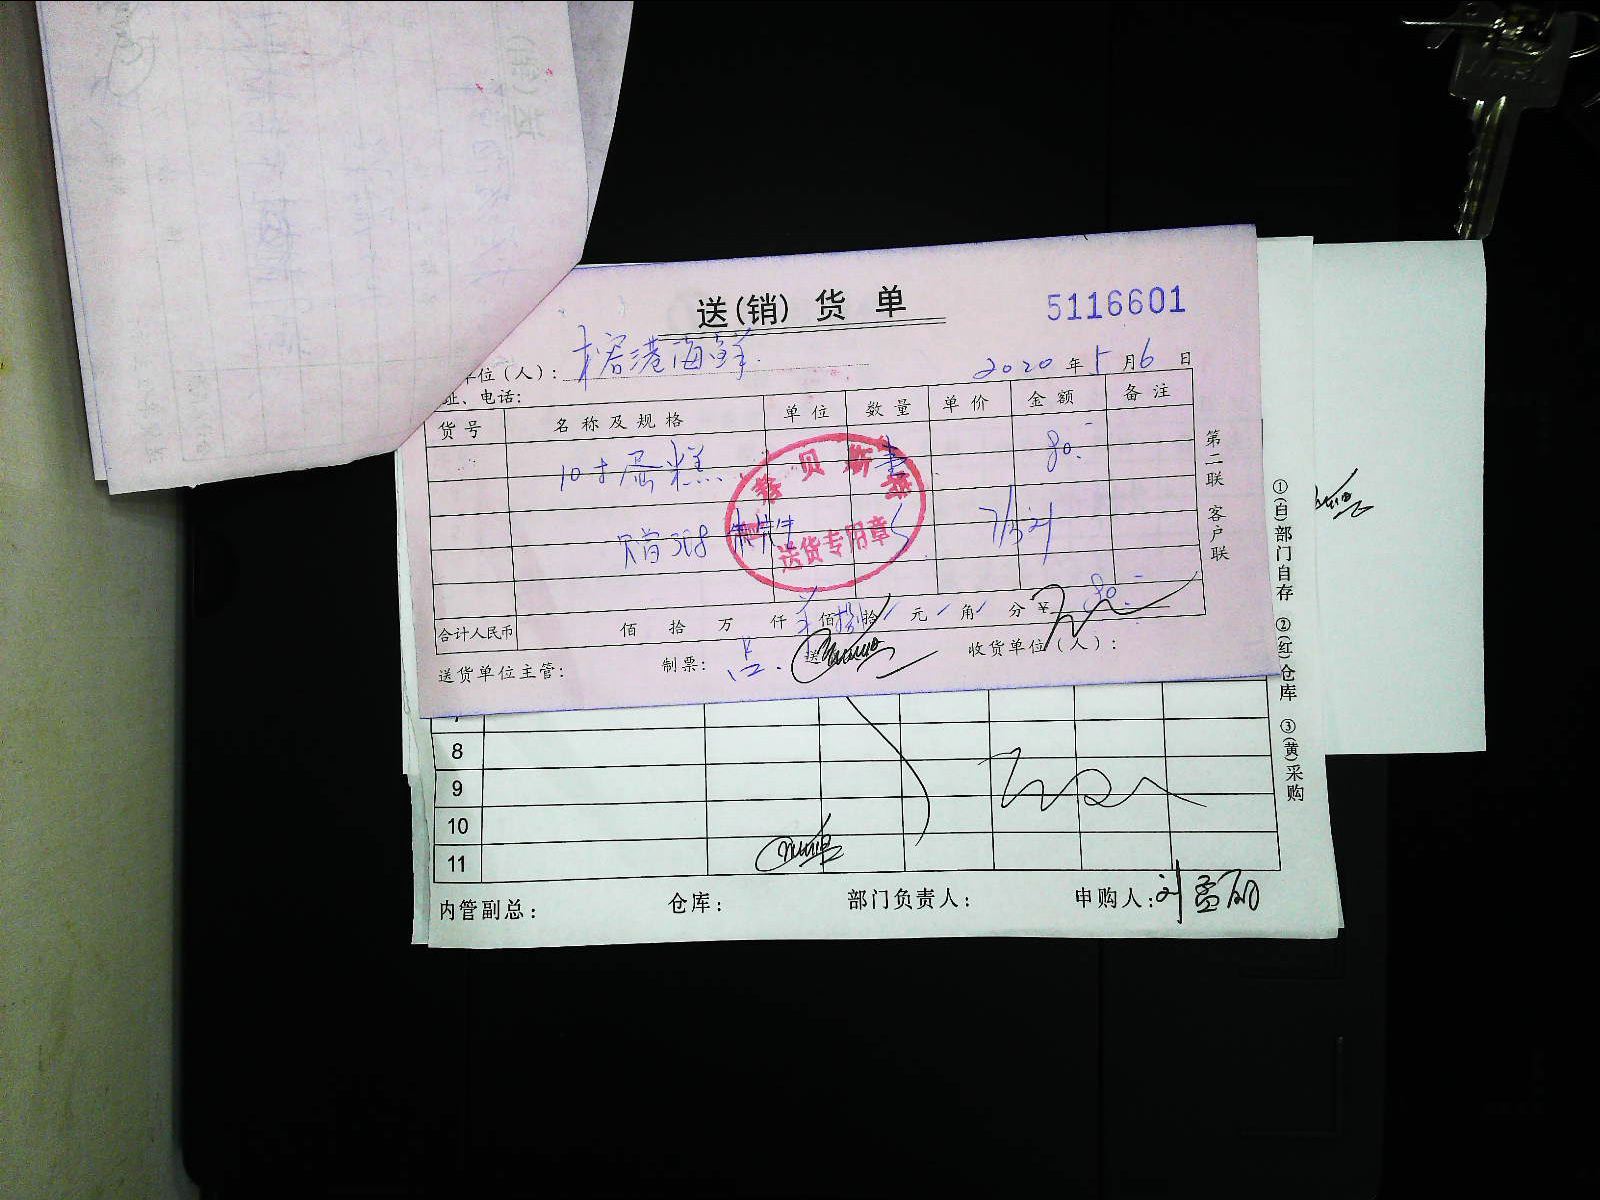 送(销)货单
5116601
单位(人): 榕港海鲜
2020年5月6日
址、电话:
货号 名称及规格 单位 数量 单价 金额 备注
10寸蛋糕 80.-
赠308
送货专用章
合计人民币 佰 拾 万 仟 佰捌拾 元 角 分 ¥80.-
送货单位主管: 制票: 送 收货单位(人):
第二联 客户联
8
9
10
11
内管副总: 仓库: 部门负责人: 申购人:
①(白)部门自存 ②(红)仓库 ③(黄)采购